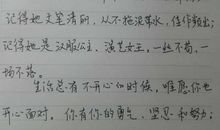 记得她文笔清丽，从不拖泥带水，佳作频出；
记得她是汉服公主，演艺女王，一丝不苟，一
场不落。
生活总有不开心的时候，唯愿你也
开心面对，你有你的勇气、坚忍和努力；